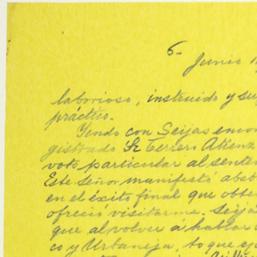 6-
Junio 1
laborioso, instruido y su
práctico.
Yendo con Seijas encon
gistrado Sr. Tercero
voto particular al senten
Este señor manifestó
en el éxito final que obte
ofreció visitarme. Seijas
que al volver á hablar
co y Urbaneja, lo que